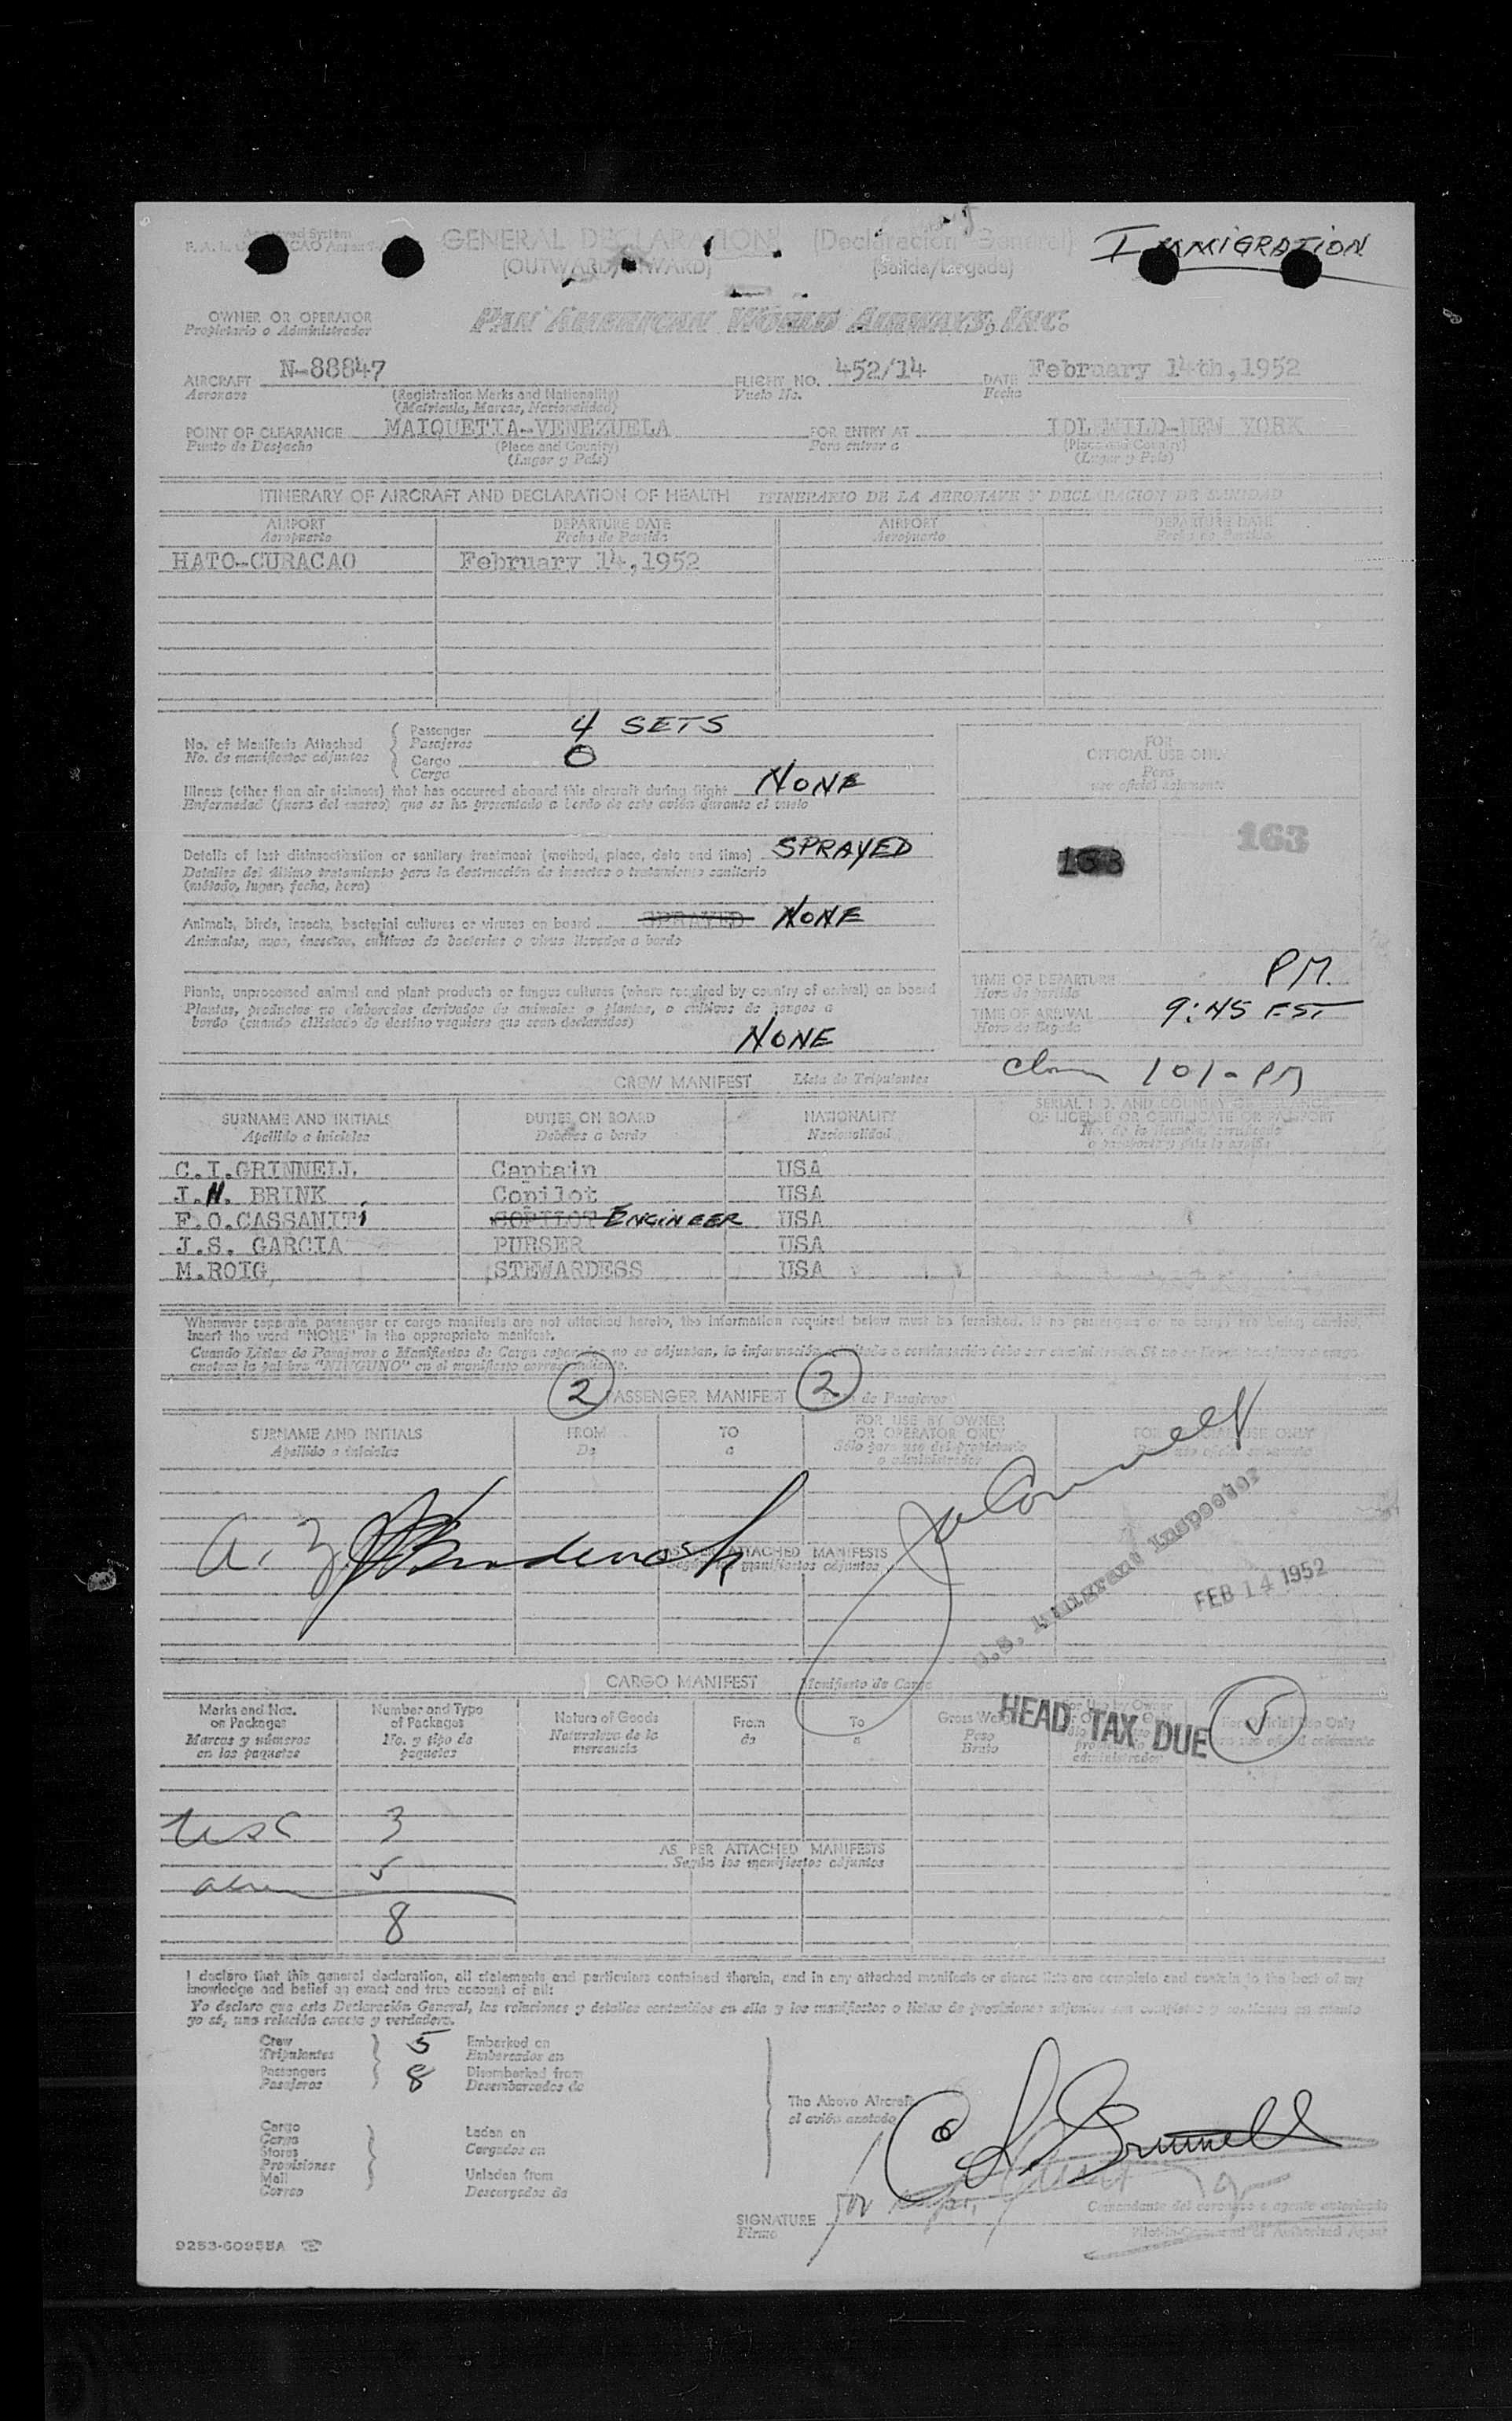 IMMIGRATION
GENERAL DECLARATION (Declaración General)
(OUTWARD/INWARD) (Salida/Llegada)
OWNER OR OPERATOR
Propietario o Administrador
PAN AMERICAN WORLD AIRWAYS, INC.
AIRCRAFT N-88847 FLIGHT NO. 452/14 DATE February 14th, 1952
Aeronave (Registration Marks and Nationality) Vuelo No. Fecha
(Matrícula, Marcas, Nacionalidad)
POINT OF CLEARANCE MAIQUETIA-VENEZUELA FOR ENTRY AT IDLEWILD-NEW YORK
Punto de Despacho (Place and Country) Para entrar a (Place and Country)
(Lugar y País) (Lugar y País)
ITINERARY OF AIRCRAFT AND DECLARATION OF HEALTH ITINERARIO DE LA AERONAVE Y DECLARACION DE SANIDAD
AIRPORT DEPARTURE DATE AIRPORT DEPARTURE DATE
Aeropuerto Fecha de Partida Aeropuerto Fecha de Partida
HATO-CURACAO February 14,1952
No. of Manifests Attached Passenger 4 SETS
No. de manifiestos adjuntos Pasajeros
Cargo 0
Carga
Illness (other than air sickness) that has occurred aboard this aircraft during flight NONE
Enfermedad (fuera del mareo) que se ha presentado a bordo de este avión durante el vuelo
Details of last disinsectization or sanitary treatment (method, place, date and time) SPRAYED
Detalles del último tratamiento para la destrucción de insectos o tratamiento sanitario
(método, lugar, fecha, hora)
Animals, birds, insects, bacterial cultures or viruses on board SPRAYED NONE
Animales, aves, insectos, cultivos de bacterias o virus llevados a bordo
Plants, unprocessed animal and plant products or fungus cultures (where required by country of arrival) on board
Plantas, productos no elaborados derivados de animales o plantas, o cultivos de hongos a
bordo (cuando el Estado de destino requiere que sean declarados)
NONE
FOR
OFFICIAL USE ONLY
Para
uso oficial solamente
163 163
TIME OF DEPARTURE PM
Hora de partida
TIME OF ARRIVAL 9:45 EST
Hora de llegada
1010 PM
CREW MANIFEST Lista de Tripulantes
SURNAME AND INITIALS DUTIES ON BOARD NATIONALITY SERIAL NO. AND COUNTRY OF ISSUANCE
OF LICENSE OR CERTIFICATE OR PASSPORT
Apellido e iniciales Deberes a bordo Nacionalidad
C.I.GRINNELL Captain USA
J.N. BRINK Copilot USA
F.O.CASSANITI COPILOT ENGINEER USA
J.S. GARCIA PURSER USA
M.ROIG STEWARDESS USA
Whenever separate passenger or cargo manifests are not attached hereto, the information required below must be furnished. If no passengers or no cargo are being carried,
insert the word "NONE" in the appropriate manifest.
Cuando Listas de Pasajeros o Manifiestos de Carga
anotese la palabra "NINGUNO" en el manifiesto correspondiente.
2 PASSENGER MANIFEST 2 de Pasajeros
SURNAME AND INITIALS FROM TO FOR USE BY OWNER
OR OPERATOR ONLY
Apellido e iniciales De a Sólo para uso del propietario
o administrador
AS PER ATTACHED MANIFESTS
Según los manifiestos adjuntos
U.S. Immigrant Inspector
FEB 14 1952
CARGO MANIFEST Manifiesto de Carga
Marks and Nos. on Packages
Marcas y números en los paquetes
Number and Type of Packages
No. y tipo de paquetes
Nature of Goods
Naturaleza de la mercancía
From
de
To
a
Gross Weight
Peso
Bruto
For Official Use Only
HEAD TAX DUE 5
USC 3
5
8
AS PER ATTACHED MANIFESTS
Según los manifiestos adjuntos
I declare that this general declaration, all statements and particulars contained therein, and in any attached manifests or stores lists are complete and contain to the best of my
knowledge and belief an exact and true account of all:
Yo declaro que esta Declaración General, las relaciones y detalles contenidos en ella y los manifiestos o listas de provisiones adjuntos son completos y contienen en cuanto
yo sé, una relación exacta y verdadera.
Crew 5 Embarked on
Tripulantes Embarcados en
Passengers 8 Disembarked from
Pasajeros Desembarcados de
The Above Aircraft
el avión anotado
Cargo
Carga
Stores
Provisiones
Mail
Correo
Laden on
Cargados en
Unladen from
Descargados de
C I Grinnell
SIGNATURE
Firma
Comandante del aeronave o agente autorizado
Pilot-in-Command or Authorized Agent
9253-60955A